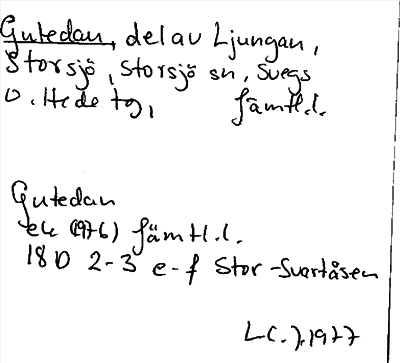 Gutedan, del av Ljungan,
Storsjö, Storsjö sn, Svegs
o. Hede tg, Jämtl.l.
Gutedan
ek (1976) Jämtl.l.
18D 2-3 e-f Stor-Svartåsen
1977